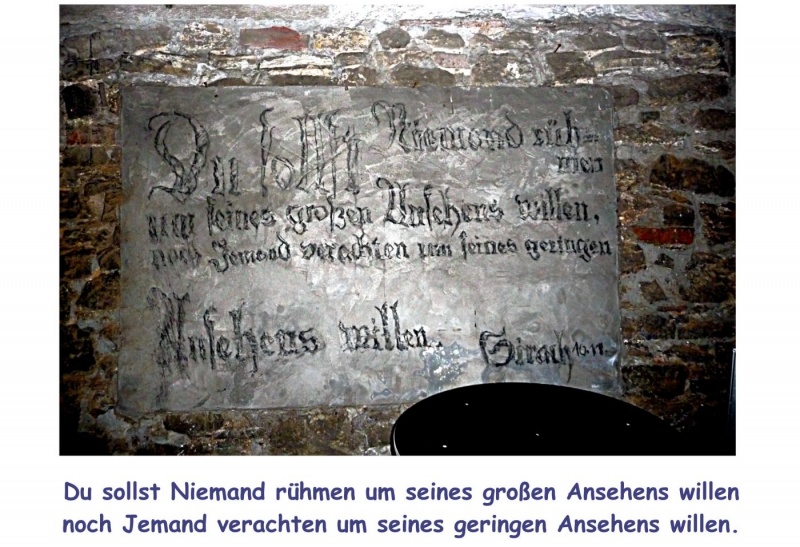 Du sollst Niemand rüh=
men
um seines großen Ansehens willen,
noch Jemand verachten um seines geringen
Ansehens willen. Sirach 10.11.
Du sollst Niemand rühmen um seines großen Ansehens willen
noch Jemand verachten um seines geringen Ansehens willen.